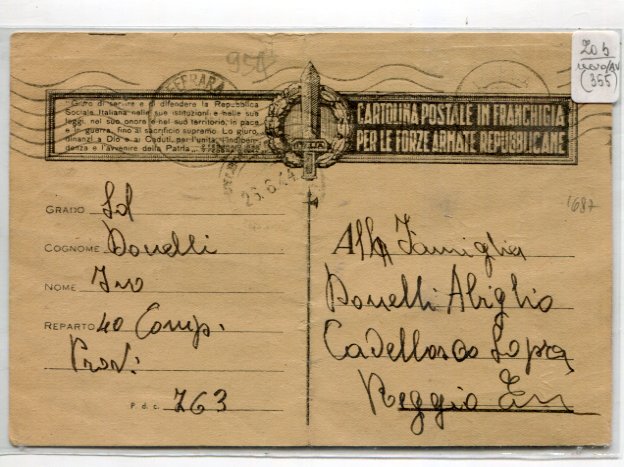 20 b
(355)
954
FERRARA
" Giuro di servire e di difendere la Repubblica
Sociale Italiana nelle sue istituzioni e nelle sue
leggi, nel suo onore e nel suo territorio, in pace
e in guerra, fino al sacrificio supremo. Lo giuro,
dinanzi a Dio e ai Caduti, per l'unità, l'indipen-
denza e l'avvenire della Patria "
ITALIA
CARTOLINA POSTALE IN FRANCHIGIA
PER LE FORZE ARMATE REPUBBLICANE
26.6.44
1687
GRADO Sol
COGNOME Donelli
NOME Ivo
REPARTO 40 Comp.
Prov.
P. d. c. 763
Alla Famiglia
Donelli Abiglio
Cadelbosco Sopra
Reggio Em